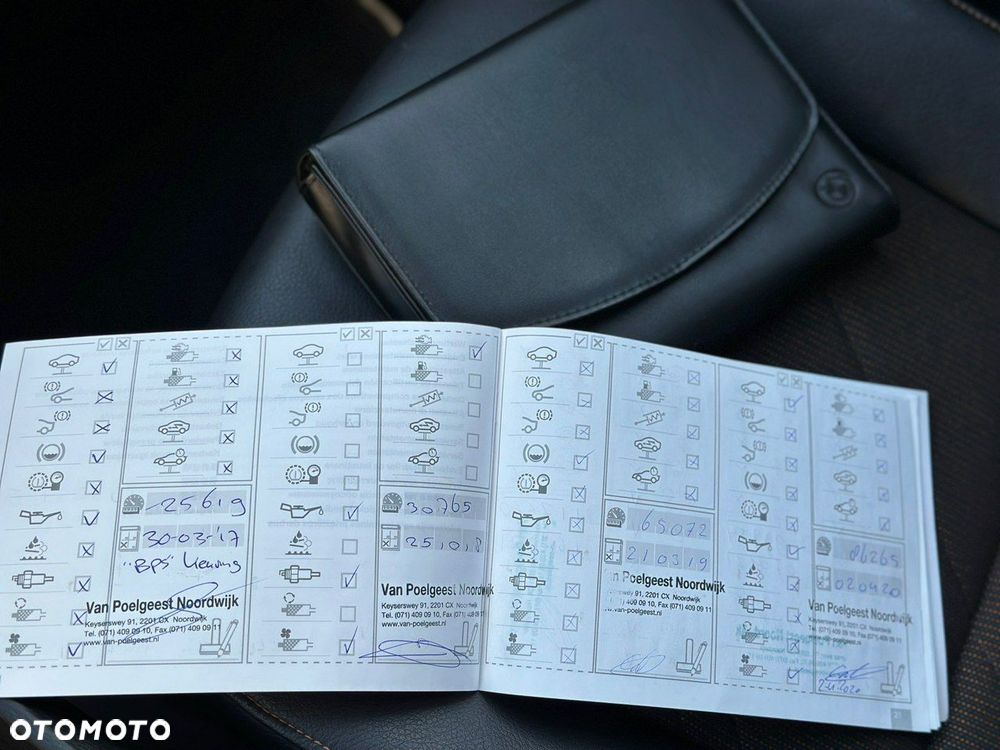 25619
30-03-'17
"BPS" Keuring
Van Poelgeest Noordwijk
Keyserswey 91, 2201 CX Noordwijk
Tel. (071) 409 09 10, Fax (071) 409 09 11
www.van-poelgeest.nl
30765
Van Poelgeest Noordwijk
Keyserswey 91, 2201 CX Noordwijk
Tel. (071) 409 09 10, Fax (071) 409 09 11
www.van-poelgeest.nl
65072
210319
Van Poelgeest Noordwijk
Keyserswey 91, 2201 CX Noordwijk
Tel. (071) 409 09 10, Fax (071) 409 09 11
www.van-poelgeest.nl
86265
020420
Van Poelgeest Noordwijk
Keyserswey 91, 2201 CX Noordwijk
Tel. (071) 409 09 10, Fax (071) 409 09 11
www.van-poelgeest.nl
21
OTOMOTO